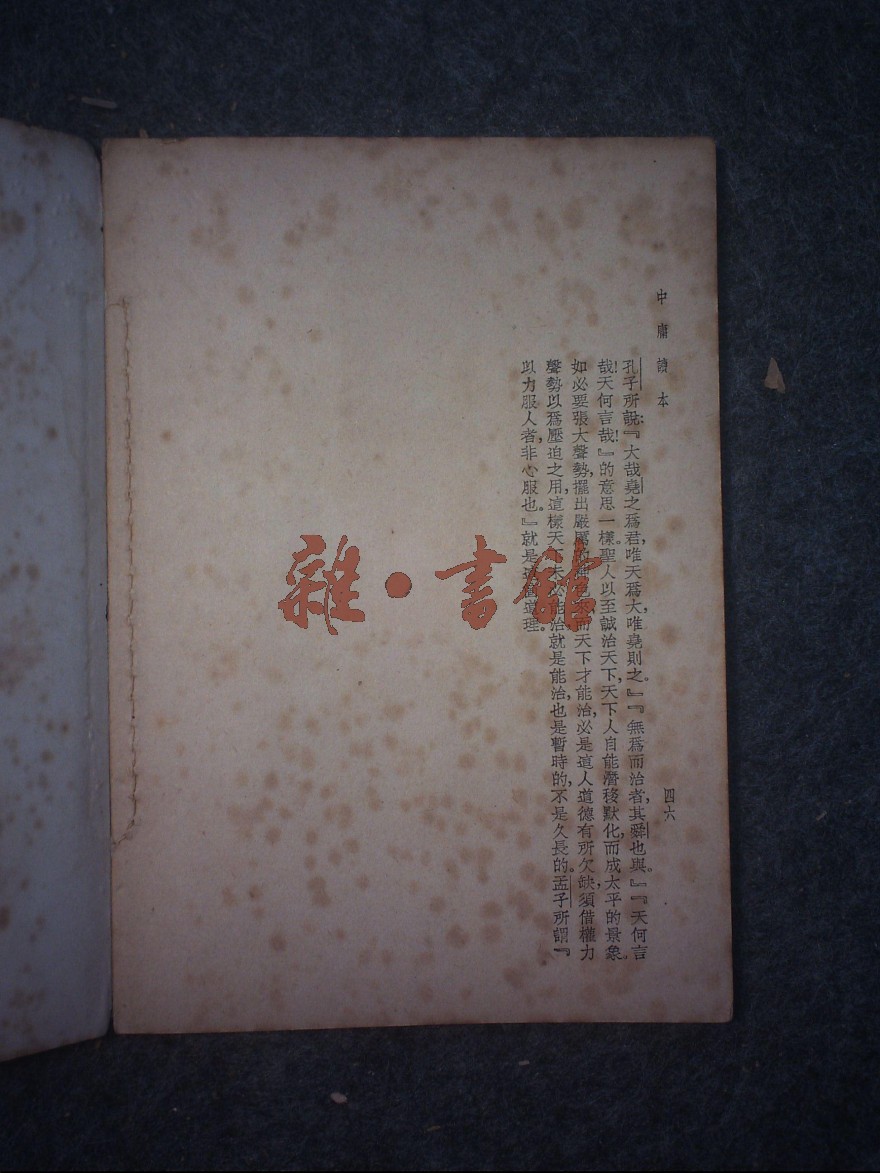 中庸讀本
四六
孔子所說:『大哉堯之爲君,唯天爲大,唯堯則之。』『無爲而治者,其舜也與。』『天何言
哉!天何言哉!』的意思一樣。聖人以至誠治天下,天下人自能潛移默化,而成太平的景象。
如必要張大聲勢,擺出嚴厲的 而天下才能治,必是這人道德有所欠缺,須借權力
聲勢以爲壓迫之用,這樣天下未必能治,就是能治,也是暫時的,不是久長的。孟子所謂『
以力服人者,非心服也。』就是這個道理。
雜·書館